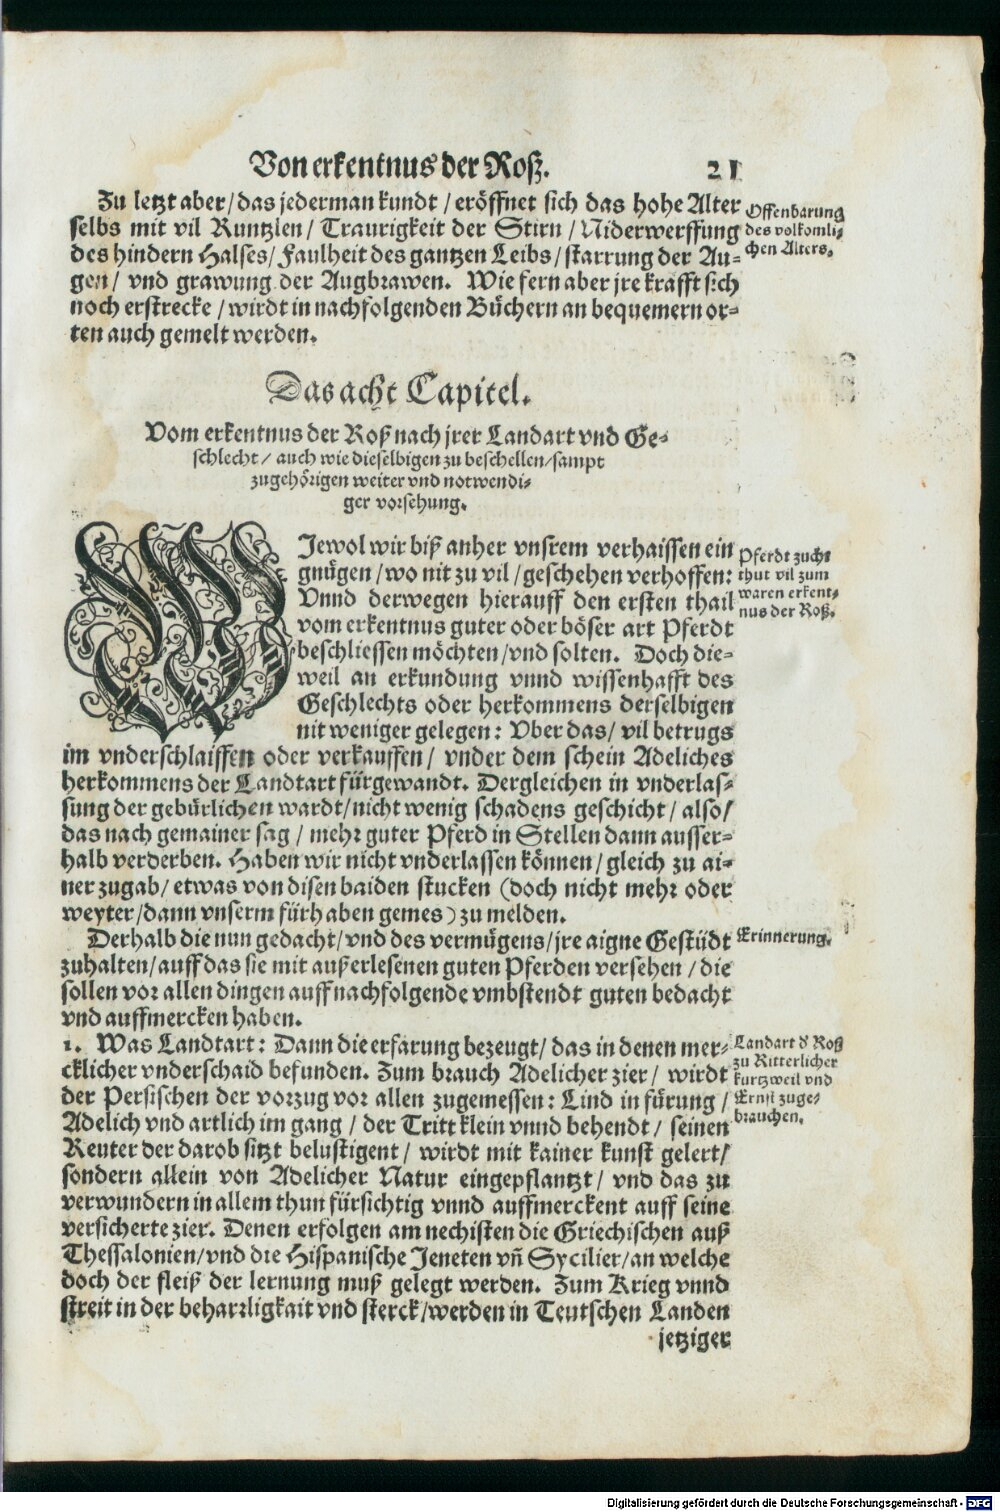 Von erkentnus der Roß. 21
Zu letzt aber / das jederman kundt / eröffnet sich das hohe Alter
selbs mit vil Runtzlen / Traurigkeit der Stirn / Niderwerffung
des hindern Halses / Faulheit des gantzen Leibs / starrung der Au-
gen / vnd grawung der Augbrawen. Wie fern aber jre krafft sich
noch erstrecke / wirdt in nachfolgenden Büchern an bequemern or-
ten auch gemelt werden.
Offenbarung
des volkomli-
chen Alters.
Das acht Capitel.
Vom erkentnus der Roß nach jrer Landart vnd Ge-
schlecht / auch wie dieselbigen zu beschellen / sampt
zugehörigen weiter vnd notwendi-
ger vorsehung.
WJewol wir biß anher vnsrem verhaissen ein
gnügen / wo nit zu vil / geschehen verhoffen:
Vnnd derwegen hierauff den ersten thail
vom erkentnus guter oder böser art Pferdt
beschliessen möchten / vnd solten. Doch die-
weil an erkundung vnnd wissenhafft des
Geschlechts oder herkommens derselbigen
nit weniger gelegen: Vber das / vil betrugs
im vnderschlaiffen oder verkauffen / vnder dem schein Adeliches
herkommens der Landtart fürgewandt. Dergleichen in vnderlas-
sung der gebürlichen wardt / nicht wenig schadens geschicht / also /
das nach gemainer sag / mehr guter Pferd in Stellen dann ausser-
halb verderben. Haben wir nicht vnderlassen können / gleich zu ai-
ner zugab / etwas von disen baiden stucken (doch nicht mehr oder
weyter / dann vnserm fürhaben gemes) zu melden.
Pferdt zucht
thut vil zum
waren erkent-
nus der Roß.
Derhalb die nun gedacht / vnd des vermügens / jre aigne Gestüdt
zuhalten / auff das sie mit außerlesenen guten Pferden versehen / die
sollen vor allen dingen auff nachfolgende vmbstendt guten bedacht
vnd auffmercken haben.
Erinnerung.
1. Was Landtart: Dann die erfarung bezeugt / das in denen mer-
cklicher vnderschaid befunden. Zum brauch Adelicher zier / wirdt
der Persischen der vorzug vor allen zugemessen: Lind in fürung /
Adelich vnd artlich im gang / der Tritt klein vnnd behendt / seinen
Reuter der darob sitzt belustigent / wirdt mit kainer kunst gelert /
sondern allein von Adelicher Natur eingepflantzt / vnd das zu
verwundern in allem thun fürsichtig vnnd auffmerckent auff seine
versicherte zier. Denen erfolgen am nechisten die Griechischen auß
Thessalonien / vnd die Hispanische Jeneten vñ Sycilier / an welche
doch der fleiß der lernung muß gelegt werden. Zum Krieg vnnd
streit in der beharzligkait vnd sterck / werden in Teutschen Landen
jetziger
Landart d' Roß
zu Ritterlicher
kurtzweil vnd
Ernst zuge-
brauchen.
Digitalisierung gefördert durch die Deutsche Forschungsgemeinschaft - DFG